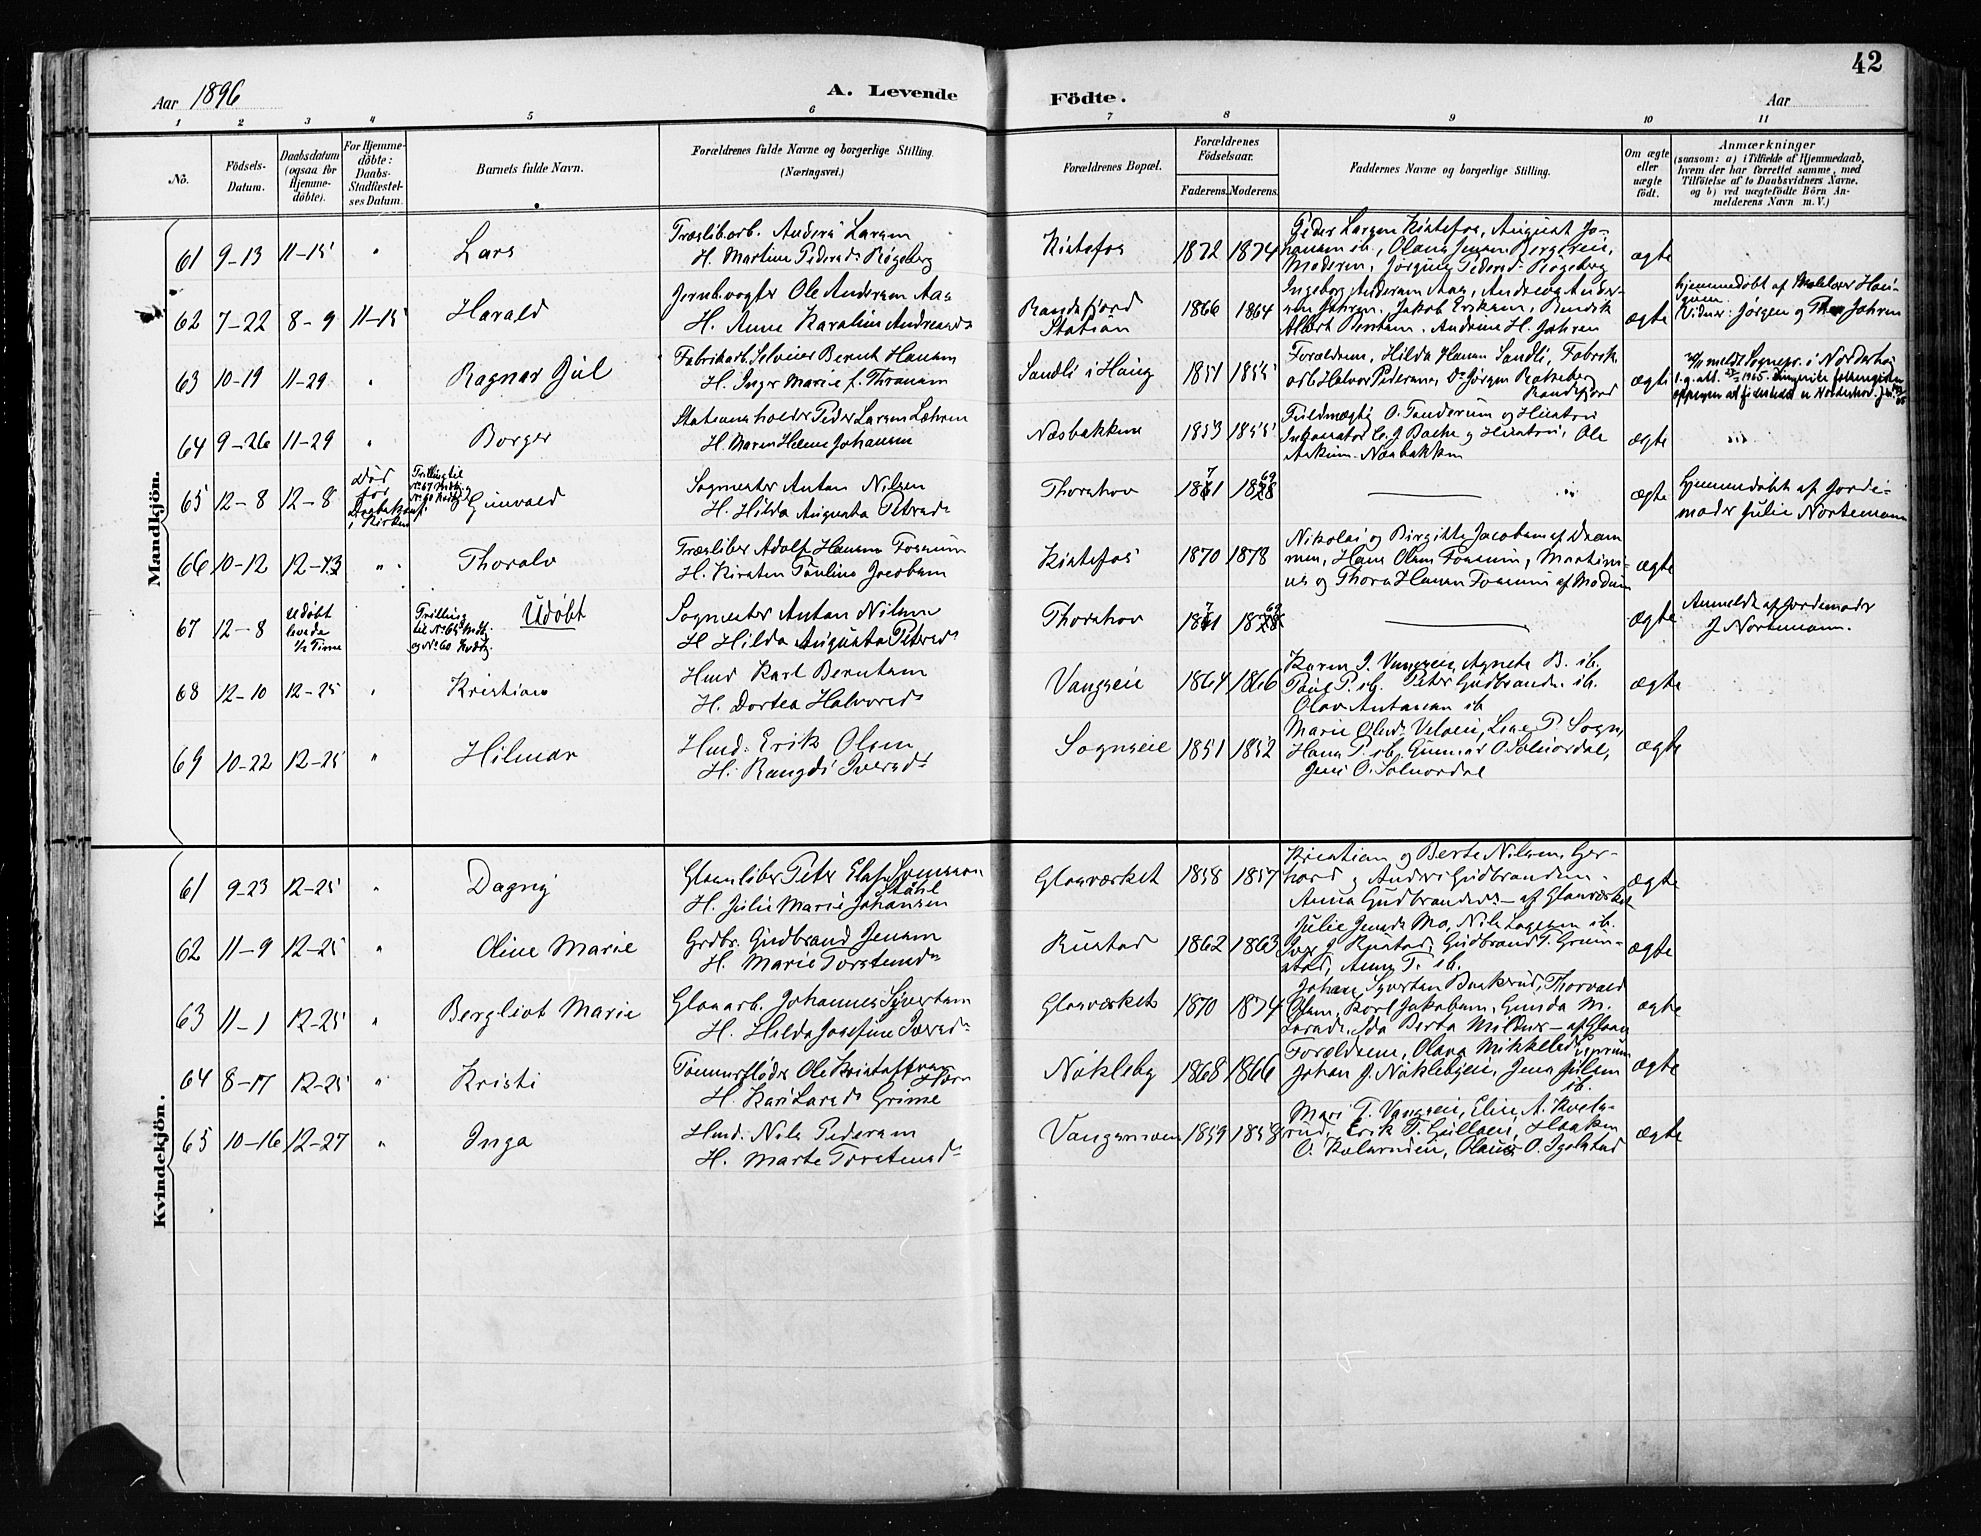 42
Aar 1896
A. Levende
Födte.
Aar
1 2 3 4 5 6 7 8 9 10 11
No.
Födsels-Datum.
Daabsdatum (ogsaa for Hjemme-döbte).
For Hjemme-döbte: Daabs-Stadfæstel-ses Datum.
Barnets fulde Navn.
Forældrenes fulde Navne og borgerlige Stilling. (Næringsvei.)
Forældrenes Bopæl.
Forældrenes Födselsaar.
Faderens. Moderens.
Faddernes Navne og borgerlige Stilling.
Om ægte eller uægte födt.
Anmærkninger
(saasom: a) i Tilfælde af Hjemmedaab, hvem der har forrettet samme, med Tilföielse af to Daabsvidners Navne, og b) ved uægtefödte Börn An-melderens Navn m. V.)
Mandkjön.
61 9-13 11-15 " Lars
Træslib.arb. Anders Larsen
H. Martine Pedersd. Røgeberg
Kistefos 1872 1874
Peder Larsen Kistefos, August Jo-
hansen ib., Olaus Jensen Bergseie,
Moderen, Jørgine Pedersd. Røgeberg
ægte
62 7-22 8-9 11-15 Harald
Jernb.vogter Ole Andersen Aas
H. Anne Karoline Andreasd.
Randsfjord Station 1866 1864
Ingeborg Andersen Aas, Andreas Ander-
sen Jahren, Jakob Eriksen, Bendik
Albert Berntsen, Andrine H. Jahren
ægte
Hjemmedøbt af Møller Han-
sen.
Vidner: Jørgen og Jahren
63 10-19 11-29 " Ragnar Jul
Fabrikarb. Selveier Bernt Hansen
H. Inger Marie f. Thranem
Sandli i Haug 1851 1855
Forældrene, Hilda Hansen Sandli, Fabrik
arb. Halvor Pedersen, Do Jørgen
Randsfjord
ægte
64 9-26 11-29 " Borger
Stationsholder Peder Larsen Løhren
H. Maren Helene Johansen
Næsbakken 1853 1855
Fuldmægtig O. Tanderum og Hustru
C. J. Bache og Hustru, Ole
Askim. Næsbakken
ægte
65 12-8 12-8
Død før Daabsbekræf. i Kirken
Trilling til No 67 Mdkj. og No 60 Kvdkj.
Gunvald
Sogmester Anton Nilsen
H. Hilda Augusta Petersd.
Thorshov 1871 1869
ægte
Hjemmedøbt af Jorde-
moder Julie Nortemann
66 10-12 12-13 " Thoralv
Træsliber Adolf Hansen Fossum
H. Kirsten Pauline Jacobsen
Kistefos 1870 1878
Nikolai og Birgitte Jacobsen af Dram-
men, Hans Olsen Fossum, Martini-
us og Thora Hansen Fossum af Modum
ægte
67 12-8 Udøbt levede ½ Time
Trilling til No 65 Mdkj. og No 60 Kvdkj.
Udøbt
Sogmester Anton Nilsen
H. Hilda Augusta Petersd.
Thorshov 1871 1869
ægte
Anmeldt af Jordemoder
J. Nortemann.
68 12-10 12-25 " Kristian
Husmd. Karl Berntsen
H. Dortea Halvorsd.
Vangseie 1864 1866
Karen J. Vangseie, Agnete B. ib.
Paul P. ib. Peter Gudbrands. ib.
Olav Antonsen ib
ægte
69 10-22 12-25 " Hilmar
Husmd. Erik Olsen
H. Rangdi Iversd.
Sognseie 1851 1852
Marie Olsd. Velseie, Line P. Sogn,
Hans P. ib. Gunnar O. Solnørdal,
Jens O. Solnordal
ægte
Kvindekjön.
61 9-23 12-25 " Dagny
Glassliber Peter Elof Svensson Ståhl
H. Julie Marie Johansen
Glasværket 1858 1857
Kristian og Berte Nilsen, Ger-
hard og Anders Gudbrandsen -
Anna Gudbrandsen - af Glasværket
ægte
62 11-9 12-25 " Oline Marie
Grdbr. Gudbrand Jensen
H. Marie Torstensd.
Rustad 1862 1863
Julie Jensd. Mo, Nils Lagesen ib.
Iver J. Rustad, Gudbrand T. Grim-
stad, Anne T. ib.
ægte
63 11-1 12-25 " Bergliot Marie
Glasarb. Johannes Syvertsen
H. Hilda Josefine Iversd.
Glasværket 1870 1874
Johan Syvertsen Buskerud, Thorvald
Olsen, Karl Jakobsen, Gunda M.
Larsd., Ida Berta Mildner - af Glasv.
ægte
64 8-17 12-25 " Kristi
Tømmerfløder Ole Kristoffersen Horn
H. Kari Larsd. Grime
Nøkleby 1868 1866
Forældrene, Olava Mikkelsd.
Johan J. Nøklebyeie, Jens Julsen ib.
ægte
65 10-16 12-27 " Inga
Husmd. Nils Pedersen
H. Marte Torstensd.
Vangsmoen 1859 1858
Mari T. Vangseie, Eline A. Kvels-
rud, Erik P. Gullseie, Haaken
O. Kolsrudeie, Olaus O. Igelstad
ægte